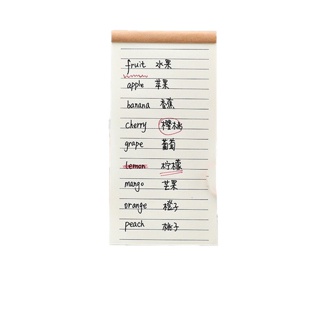 fruit 水果
apple 苹果
banana 香蕉
cherry 樱桃
grape 葡萄
lemon 柠檬
mango 芒果
orange 橙子
peach 桃子